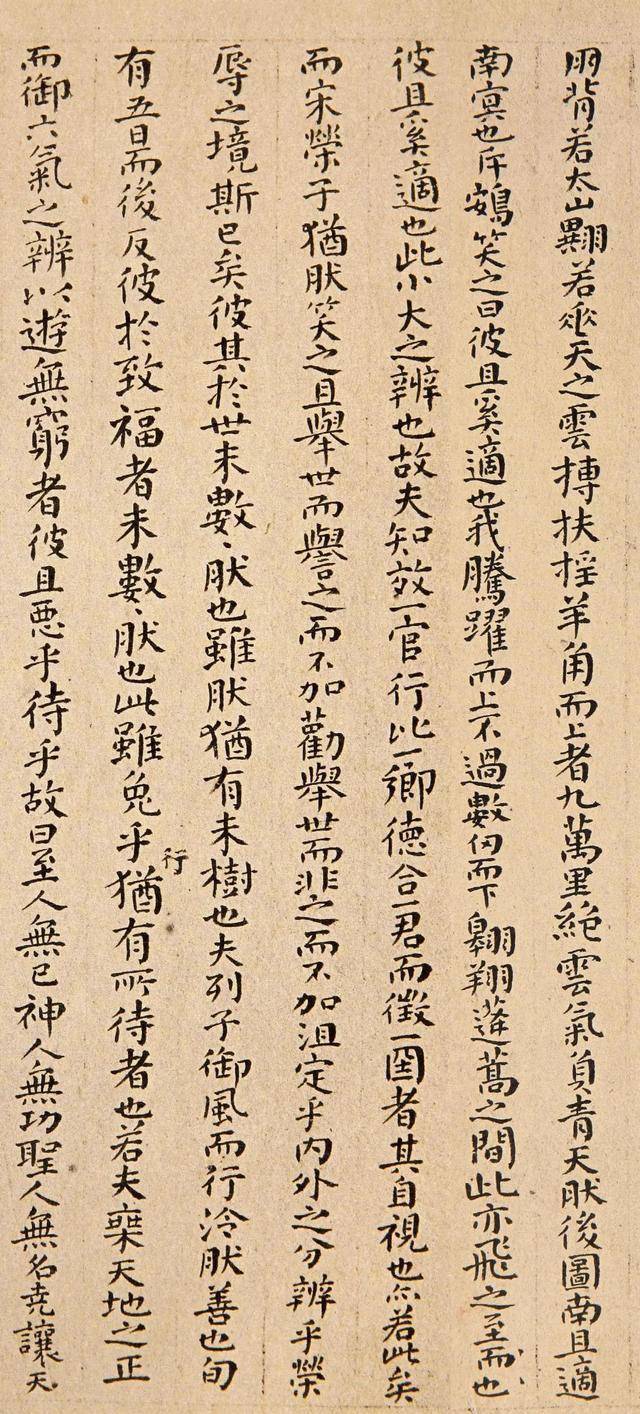 朋背若太山翼若垂天之雲摶扶揺羊角而上者九萬里絕雲氣負青天肰後圖南且適
南冥也斥鴳笑之曰彼且奚適也我騰躍而上不過數仞而下翱翔蓬蒿之間此亦飛之至而也
彼且奚適也此小大之辨也故夫知效一官行比一鄉德合一君而徵一國者其自視也亦若此矣
而宋榮子猶肰笑之且舉世而譽之而不加勸舉世而非之而不加沮定乎內外之分辨乎榮
辱之境斯已矣彼其於世未數〻肰也雖肰猶有未樹也夫列子御風而行泠肰善也旬
有五日而後反彼於致福者未數〻肰也此雖免乎行猶有所待者也若夫乘天地之正
而御六氣之辨以遊無窮者彼且惡乎待乎故曰至人無已神人無功聖人無名堯讓天